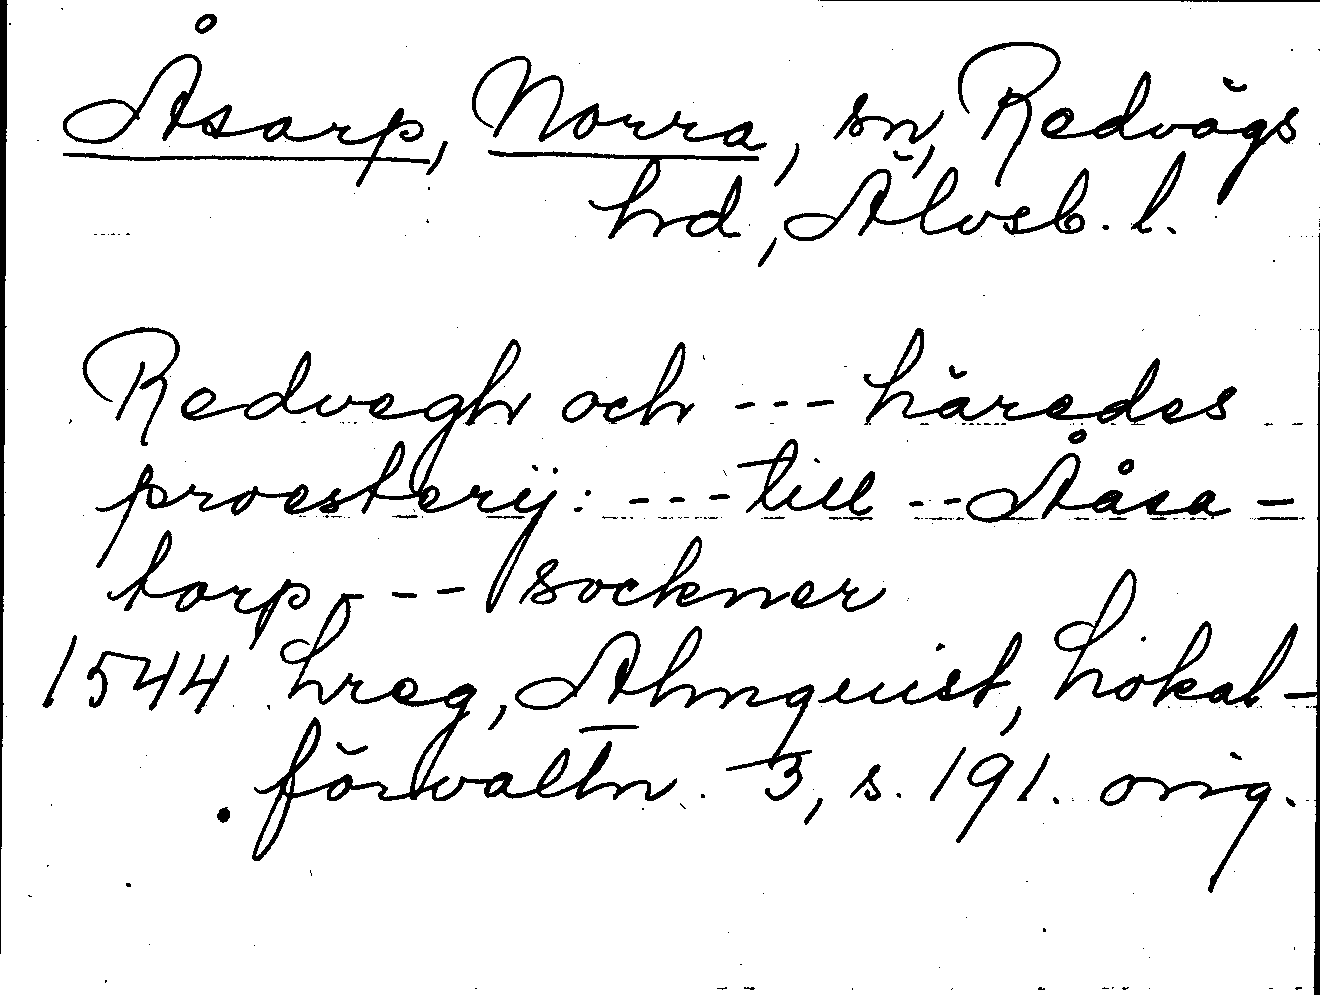 Åsarp, Norra, sn, Redvägs
hd, Älvsb. l.
Redvegh och --- häredes
proesterij: --- till -- Åása-
torp --- sockner
1544 hreg, Almquist, Lokal-
förvaltn. 3, s. 191. orig.